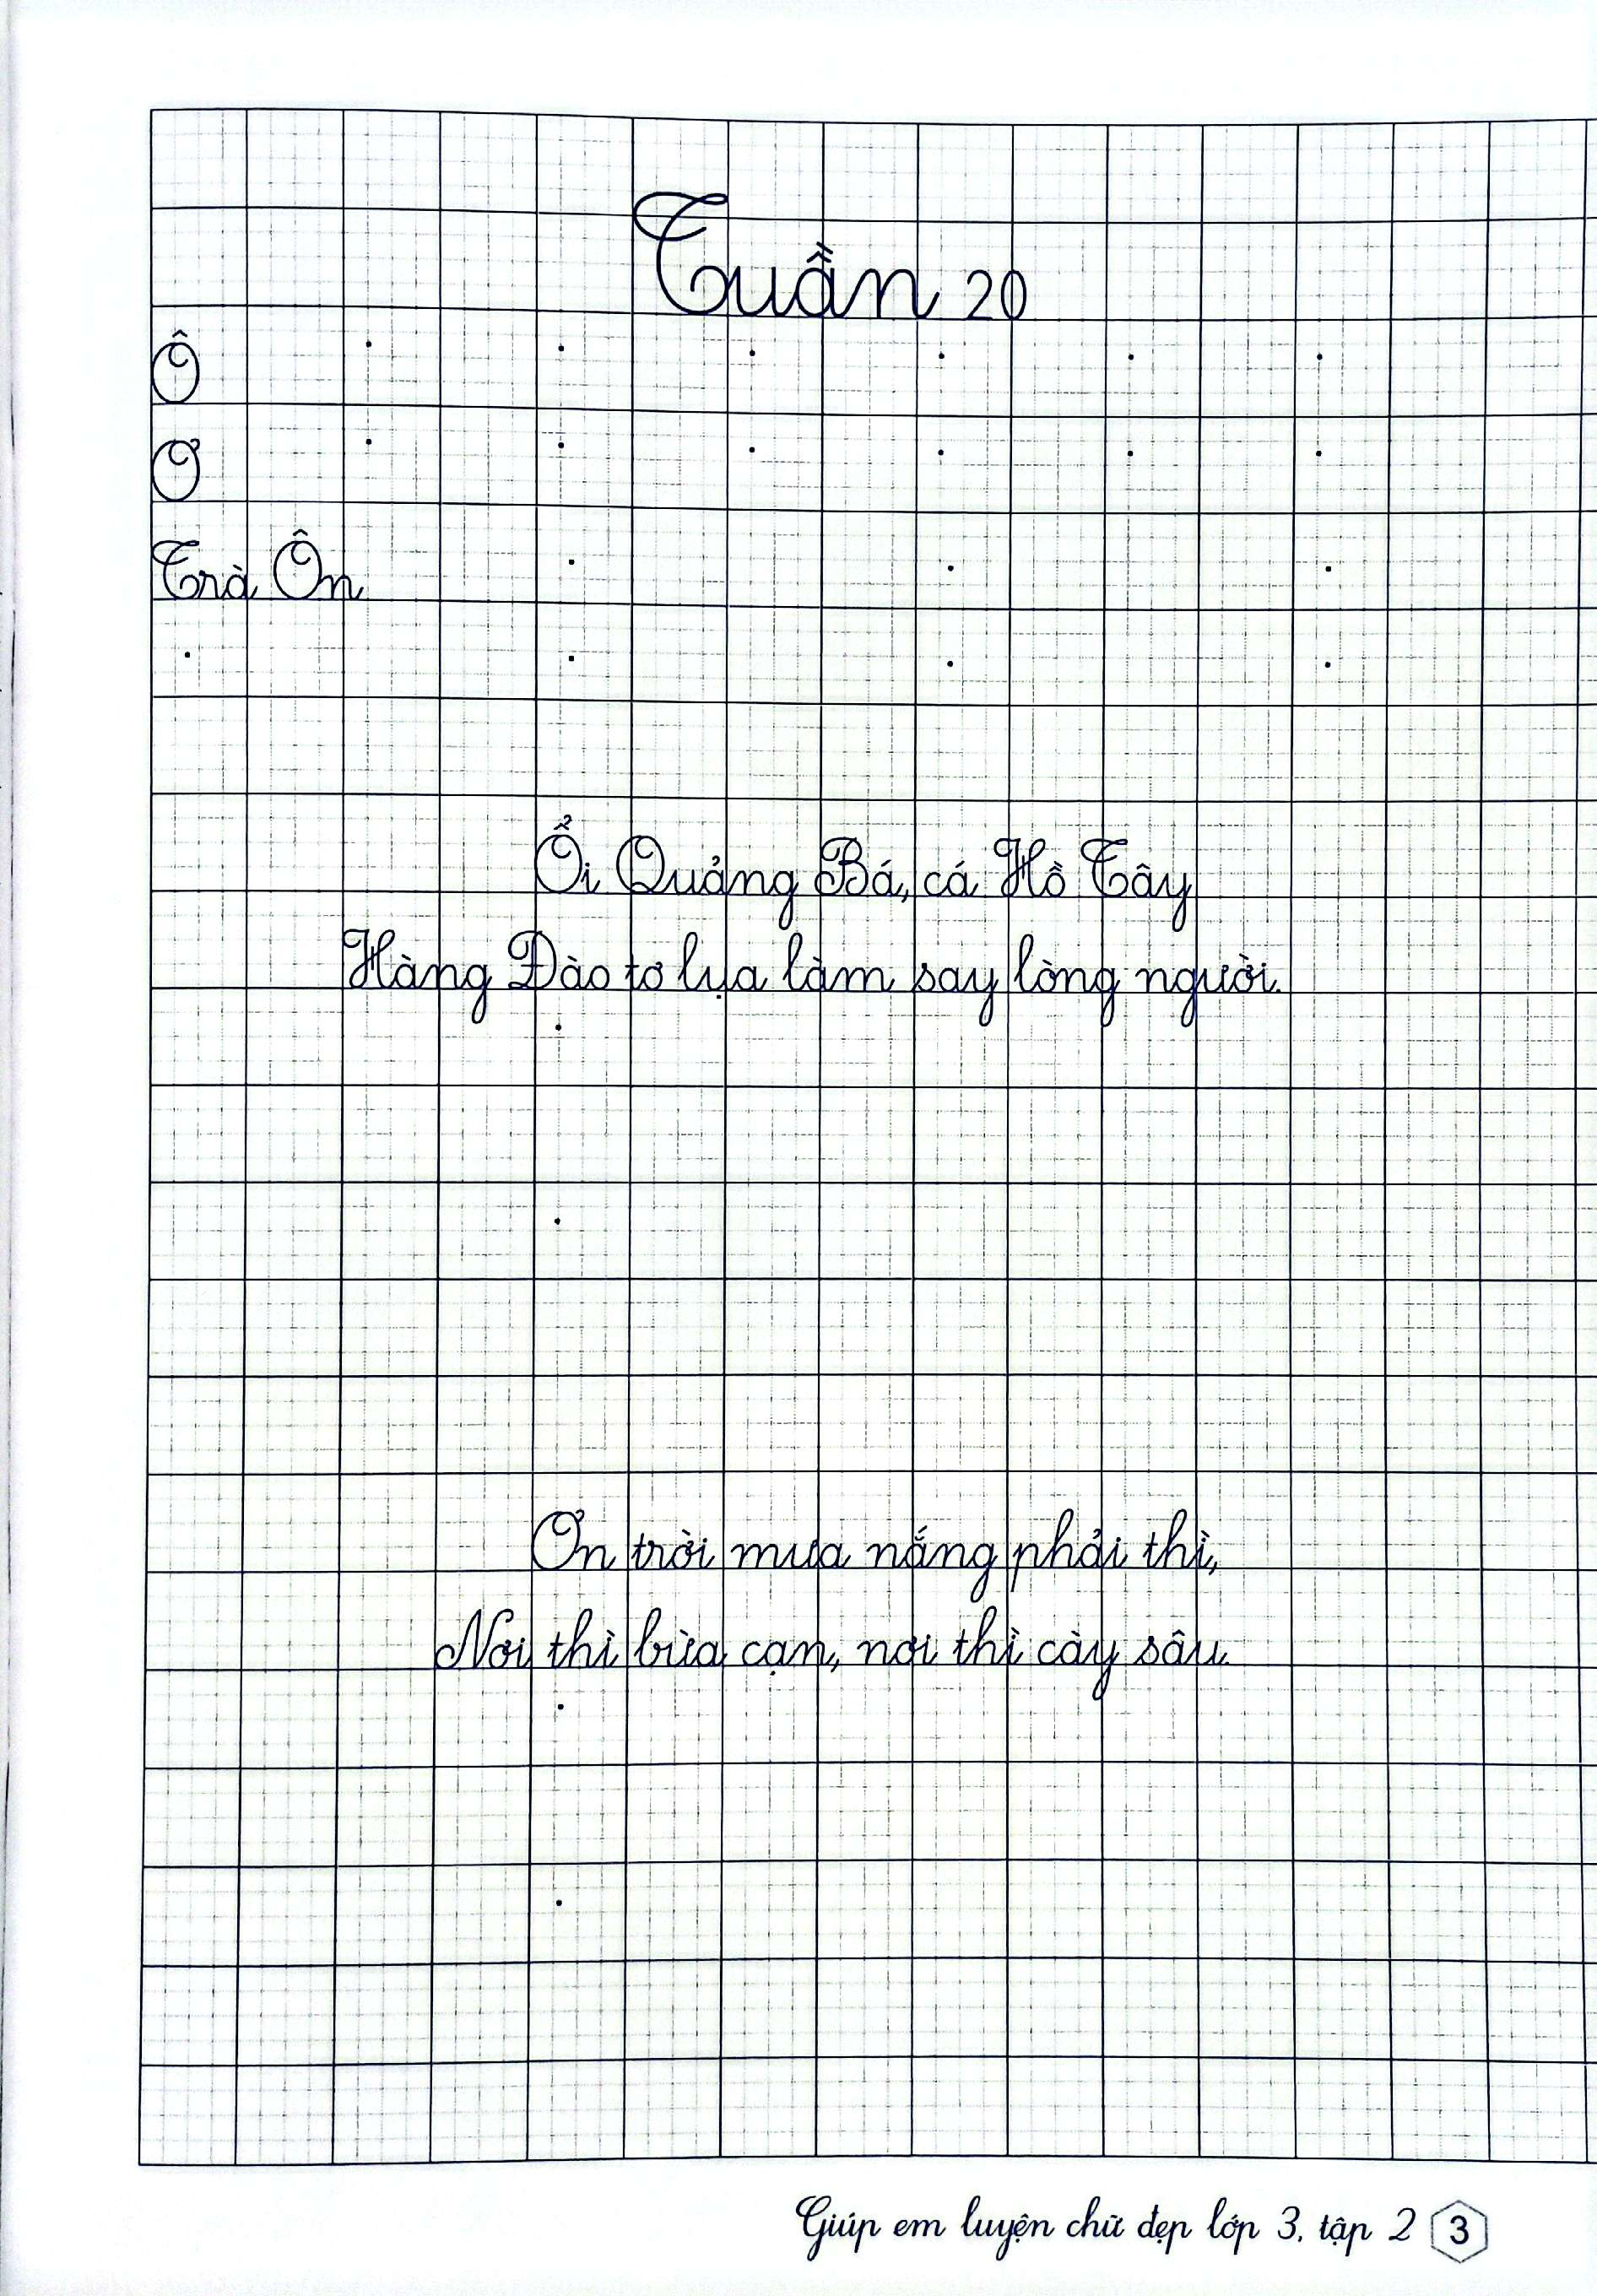 Tuần 20
Ô
Ơ
Trà Ôn
Ổi Quảng Bá, cá Hồ Tây
Hàng Đào tơ lụa làm say lòng người.
Ơn trời mưa nắng phải thì,
Nơi thì bừa cạn, nơi thì cày sâu.
Giúp em luyện chữ đẹp lớp 3, tập 2 3